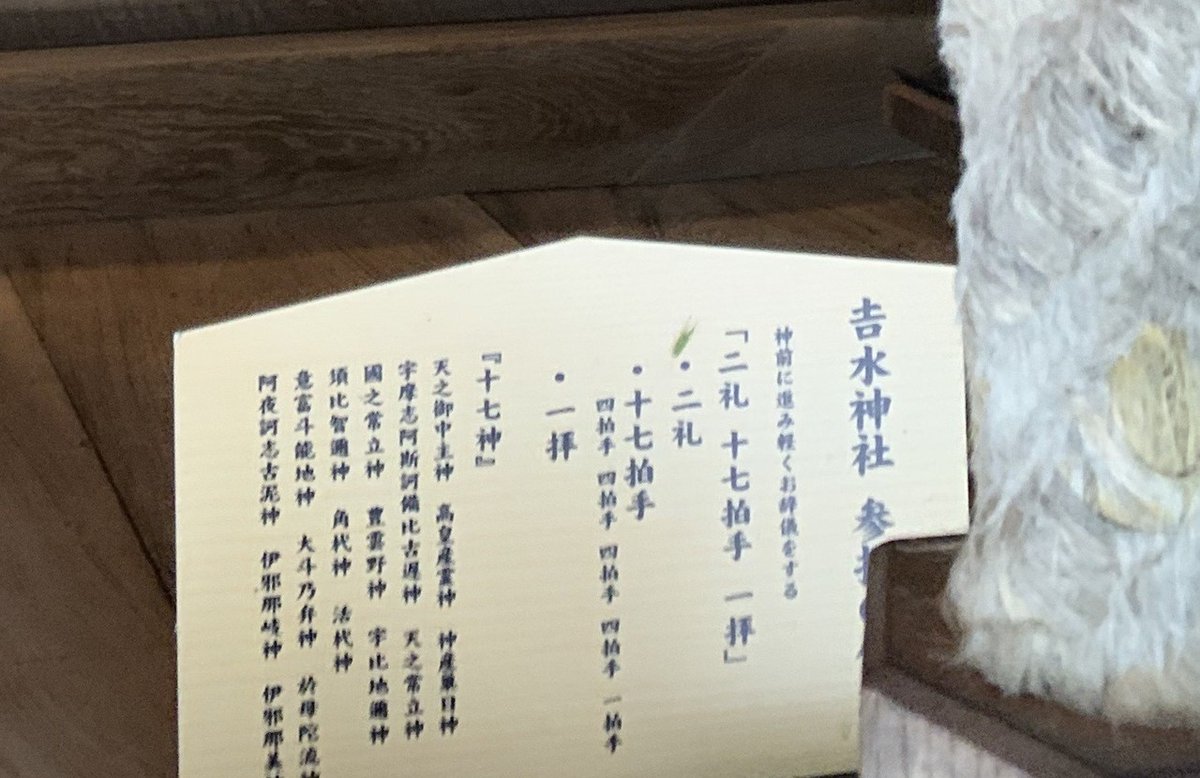 吉水神社 参拝
神前に進み軽くお辞儀をする
「二礼 十七拍手 一拝」
・二礼
・十七拍手
四拍手 四拍手 四拍手 四拍手 一拍手
・一拝
『十七神』
天之御中主神 高皇産霊神 神産巣日神
宇摩志阿斯訶備比古遅神 天之常立神
國之常立神 豊雲野神 宇比地邇神
須比智邇神 角杙神 活杙神
意富斗能地神 大斗乃弁神 於母陀流神
阿夜訶志古泥神 伊邪那岐神 伊邪那美